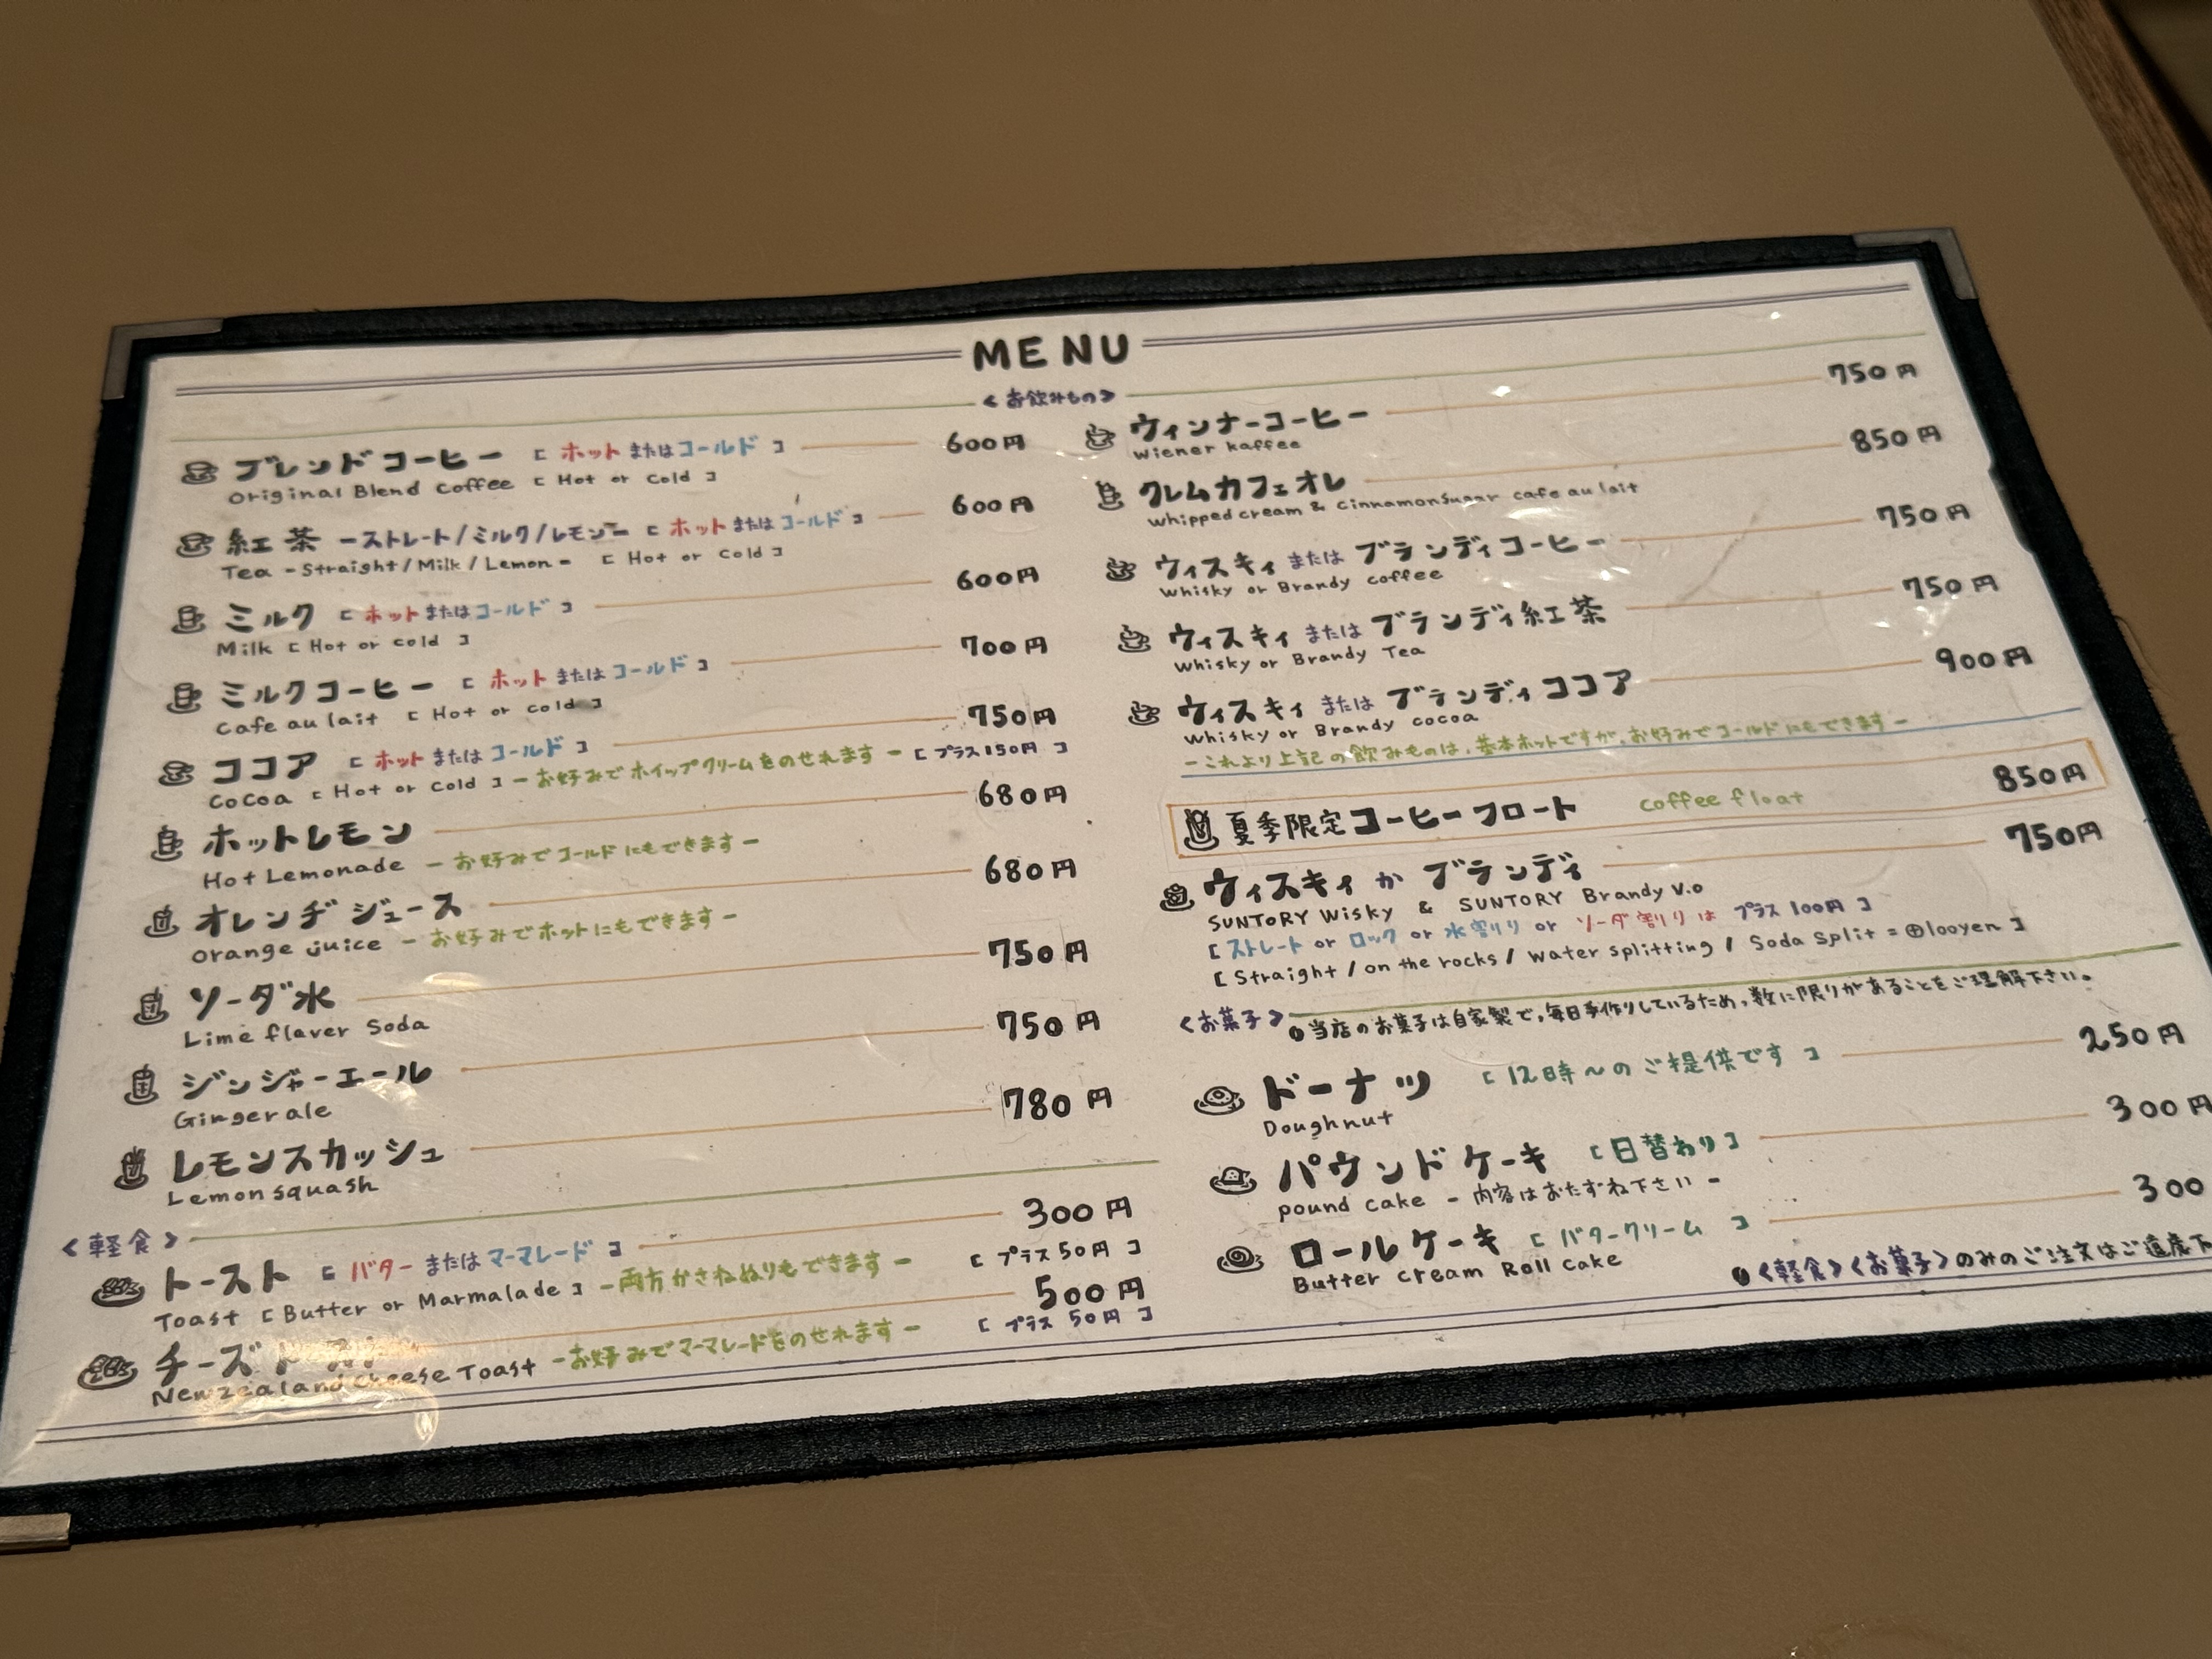 MENU
<お飲みもの>
ブレンドコーヒー [ホットまたはコールド] 600円
Original Blend Coffee [Hot or Cold]
紅茶 -ストレート/ミルク/レモン- [ホットまたはコールド] 600円
Tea -Straight/Milk/Lemon- [Hot or Cold]
ミルク [ホットまたはコールド] 600円
Milk [Hot or Cold]
ミルクコーヒー [ホットまたはコールド] 700円
Cafe au lait [Hot or cold]
ココア [ホットまたはコールド] 750円
Cocoa [Hot or Cold] -お好みでホイップクリームをのせれます- [プラス150円]
ホットレモン 680円
Hot Lemonade -お好みでコールドにもできます-
オレンヂジュース 680円
Orange juice -お好みでホットにもできます-
ソーダ水 750円
Lime flaver Soda
ジンジャーエール 750円
Ginger ale
レモンスカッシュ 780円
Lemon squash
<軽食>
トースト [バターまたはマーマレード] 300円
Toast [Butter or Marmalade] -両方かさねぬりもできます- [プラス50円]
チーズトースト 500円
Newzealand Cheese Toast -お好みでマーマレードをのせれます- [プラス50円]
ウィンナーコーヒー 750円
Wiener kaffee
クレムカフェオレ 850円
Whipped cream & Cinnamonsugar cafe au lait
ウィスキィまたはブランディコーヒー 750円
Whisky or Brandy coffee
ウィスキィまたはブランディ紅茶 750円
Whisky or Brandy Tea
ウィスキィまたはブランディココア 900円
Whisky or Brandy cocoa
-これより上記の飲みものは、基本ホットですが、お好みでコールドにもできます-
夏季限定コーヒーフロート coffee float 850円
ウィスキィかブランディ 750円
SUNTORY Wisky & SUNTORY Brandy V.O
[ストレート or ロック or 水割り or ソーダ割りはプラス100円]
[Straight / on the rocks / Water splitting / Soda Split = ⊕100yen]
<お菓子> ●当店のお菓子は自家製で、毎日手作りしているため、数に限りがあることをご理解下さい。
ドーナツ [12時〜のご提供です] 250円
Doughnut
パウンドケーキ [日替わり] 300円
pound cake -内容はおたずね下さい-
ロールケーキ [バタークリーム] 300
Butter cream Roll Cake
●<軽食><お菓子>のみのご注文はご遠慮下